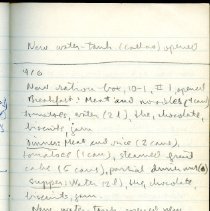 New water-tank (call no) opened
4/10
New ration-box, 10-1, #1, opened
Breakfast: Meat and noodles (1 can)
tomatoes, water (2 l), tea, chocolate,
biscuits, jam
Dinner: Meat and rice (2 cans),
tomatoes (1 can), steamed fruit
cake (5 cans), partial dinner
Supper: Water (2 l), tea, chocolate
biscuits, jam.
New water tank opened